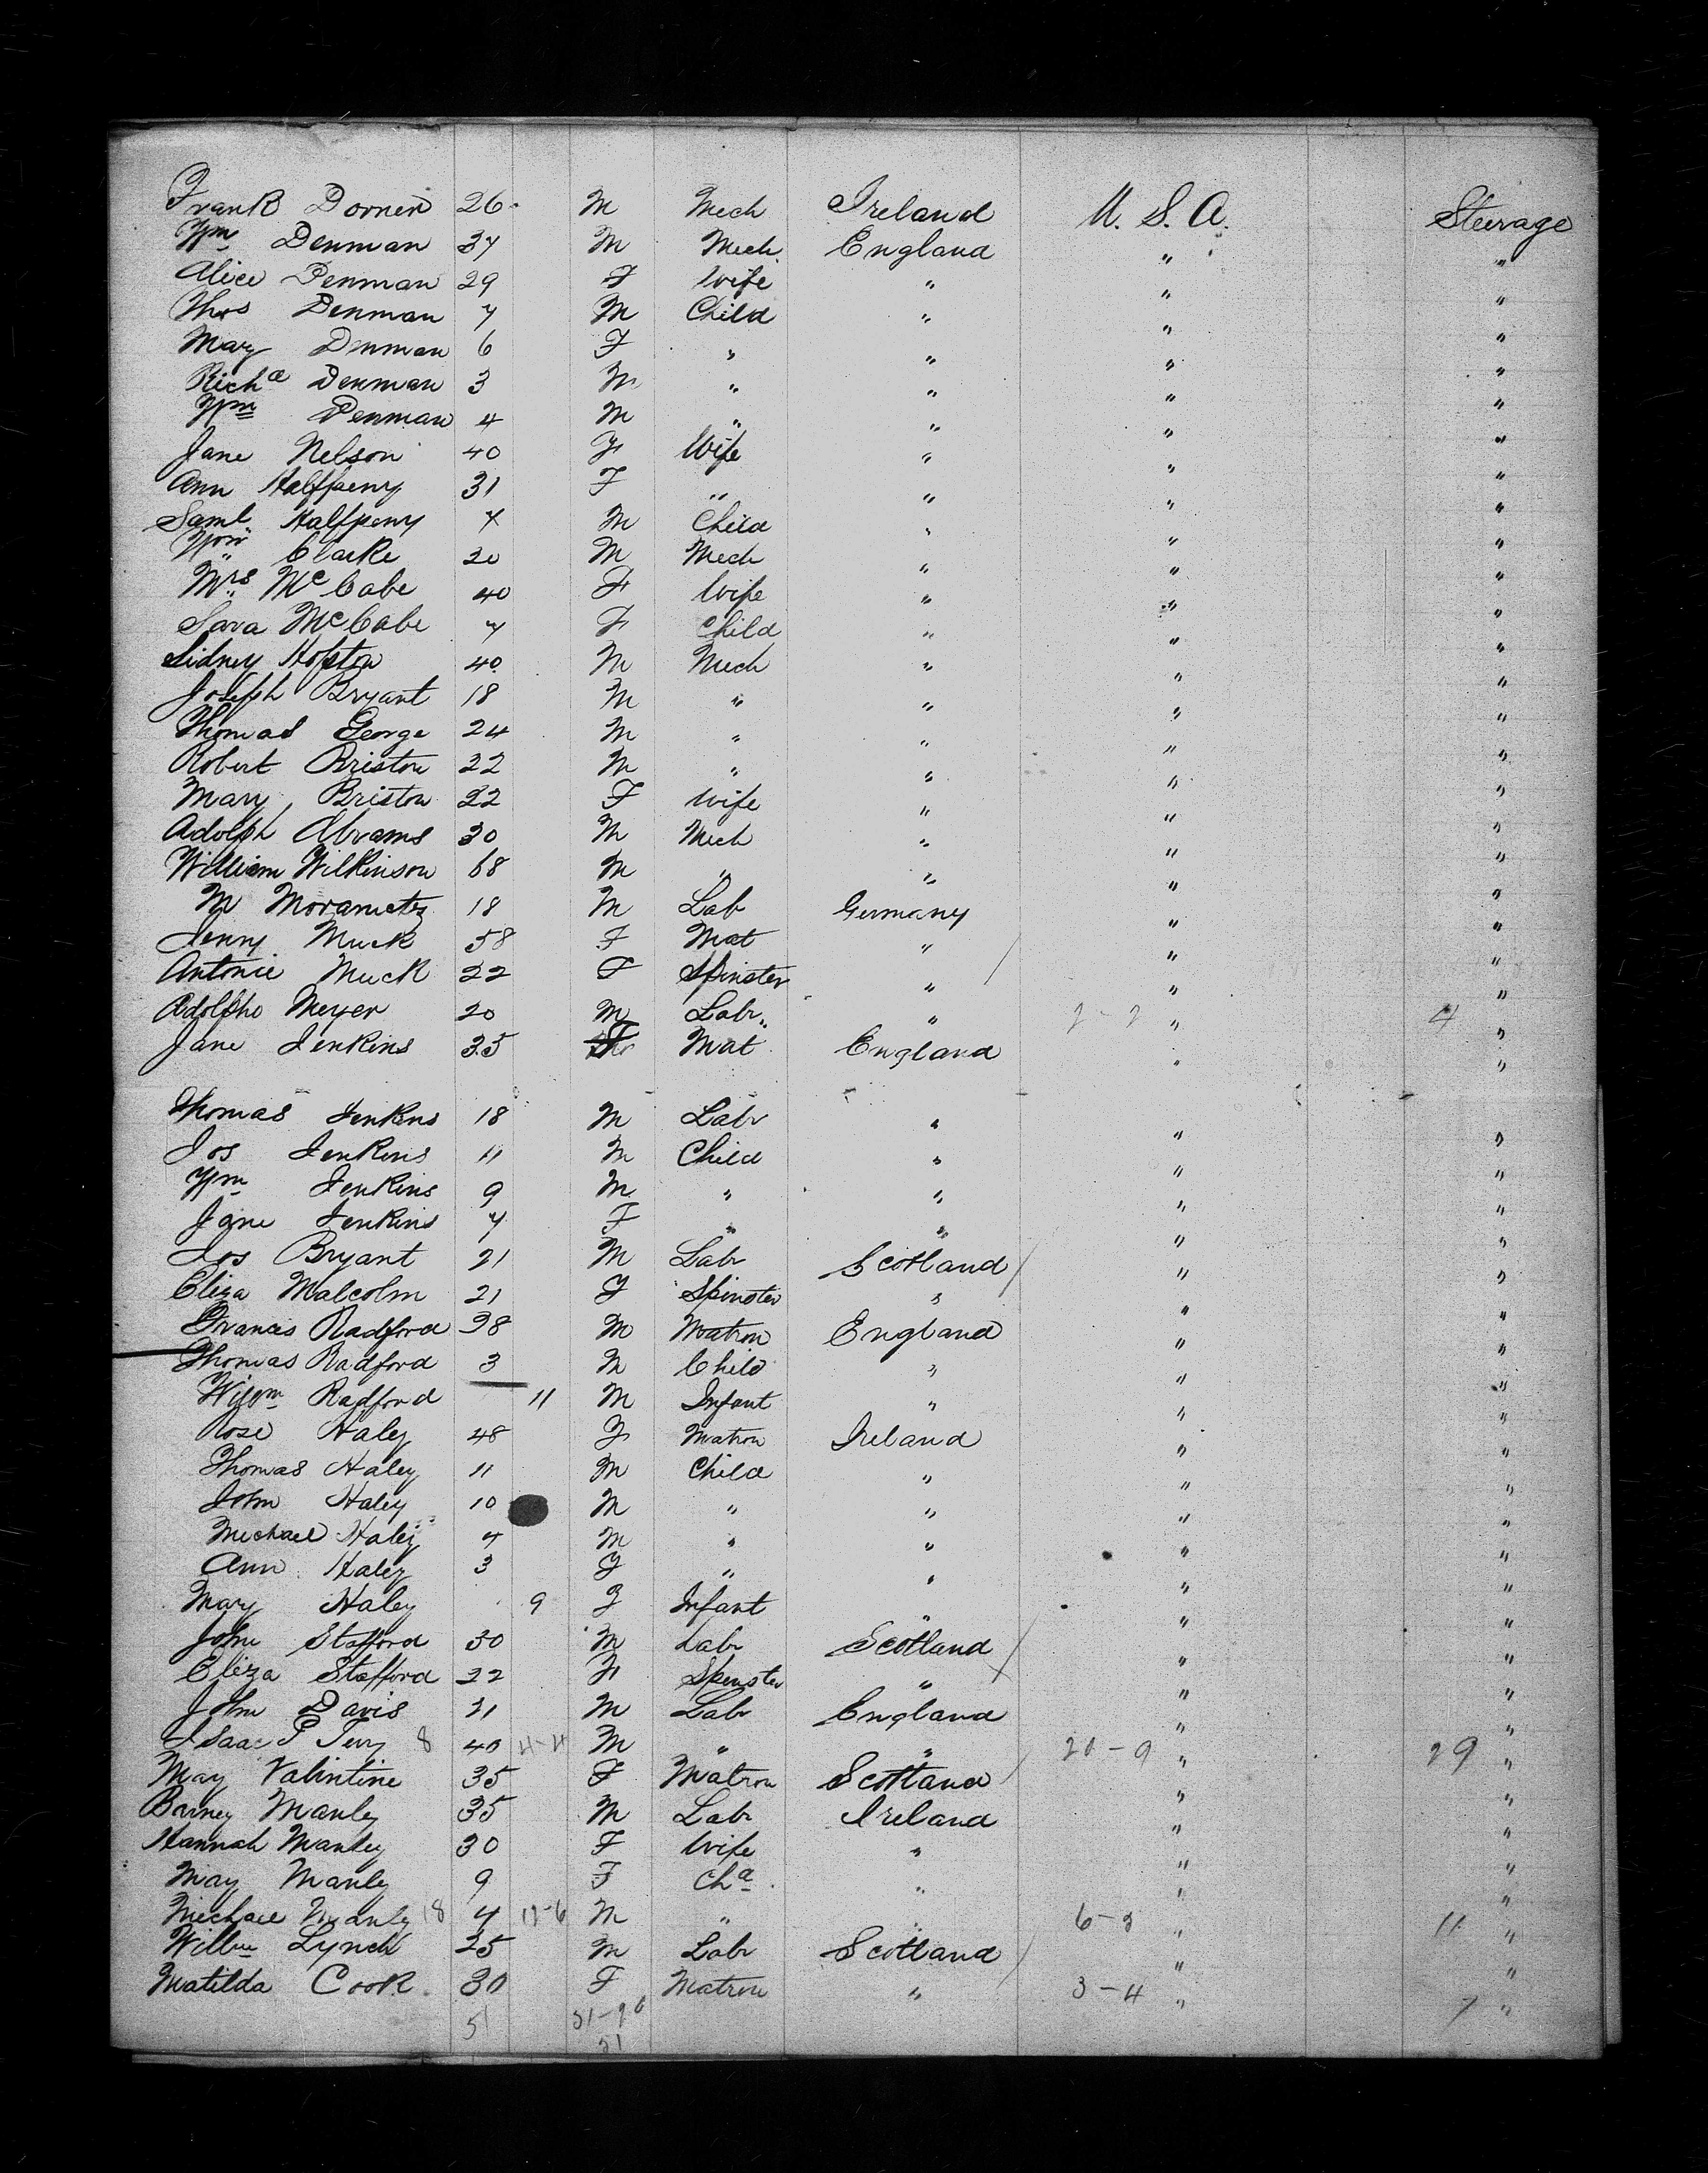 Frank Dornen 26 M Mech Ireland U. S. A. Steerage
Wm Denman 37 M Mech England " "
Alice Denman 29 F Wife " " "
Thos Denman 7 M Child " " "
Mary Denman 6 F " " " "
Richd Denman 3 M " " " "
Wm Denman 4 M " " " "
Jane Nelson 40 F Wife " " "
Ann Halfpeny 31 F " " " "
Saml Halfpeny 7 M Child " " "
Wm Clarke 20 M Mech " " "
Mrs McCabe 40 F Wife " " "
Sara McCabe 7 F Child " " "
Sidney Hopton 40 M Mech " " "
Joseph Bryant 18 M " " " "
Thomas George 24 M " " " "
Robert Bristow 22 M " " " "
Mary Bristow 22 F Wife " " "
Adolph Abrams 30 M Mech " " "
William Wilkinson 68 M " " " "
M Morametz 18 M Lab Germany " "
Jenny Muck 58 F Mat " " "
Antonie Muck 22 F Spinster " " "
Adolpho Meyer 20 M Labr " 2-2 " 4 "
Jane Jenkins 35 F Mat England " "
Thomas Jenkins 18 M Labr " " "
Jos Jenkins 11 M Child " " "
Wm Jenkins 9 M " " " "
Jane Jenkins 7 F " " " "
Jos Bryant 21 M Labr Scotland / " "
Eliza Malcolm 21 F Spinster " " "
Francis Radford 38 M Matron England " "
Thomas Radford 3 M Child " " "
Willm Radford 11 M Infant " " "
Rose Haley 48 F Matron Ireland " "
Thomas Haley 11 M Child " " "
John Haley 10 M " " " "
Michael Haley 4 M " " " "
Ann Haley 3 F " " " "
Mary Haley 9 F Infant " " "
John Stafford 30 M Labr Scotland / " "
Eliza Stafford 22 F Spinster " / " "
John Davis 21 M Labr England " "
Isaac P 8 40 4-4 M " " 20-9 " 29 "
May Valintine 35 F Matron Scotland / " "
Barney Manley 35 M Labr Ireland " "
Hannah Manley 30 F Wife " " "
May Manley 9 F Chd " " "
Michael Manley 18 4 12-6 M " " 6-3 " 11 "
Willm Lynch 25 M Labr Scotland / " "
Matilda Cook 30 F Matron " 3-4 " 7 "
51 31-20
51